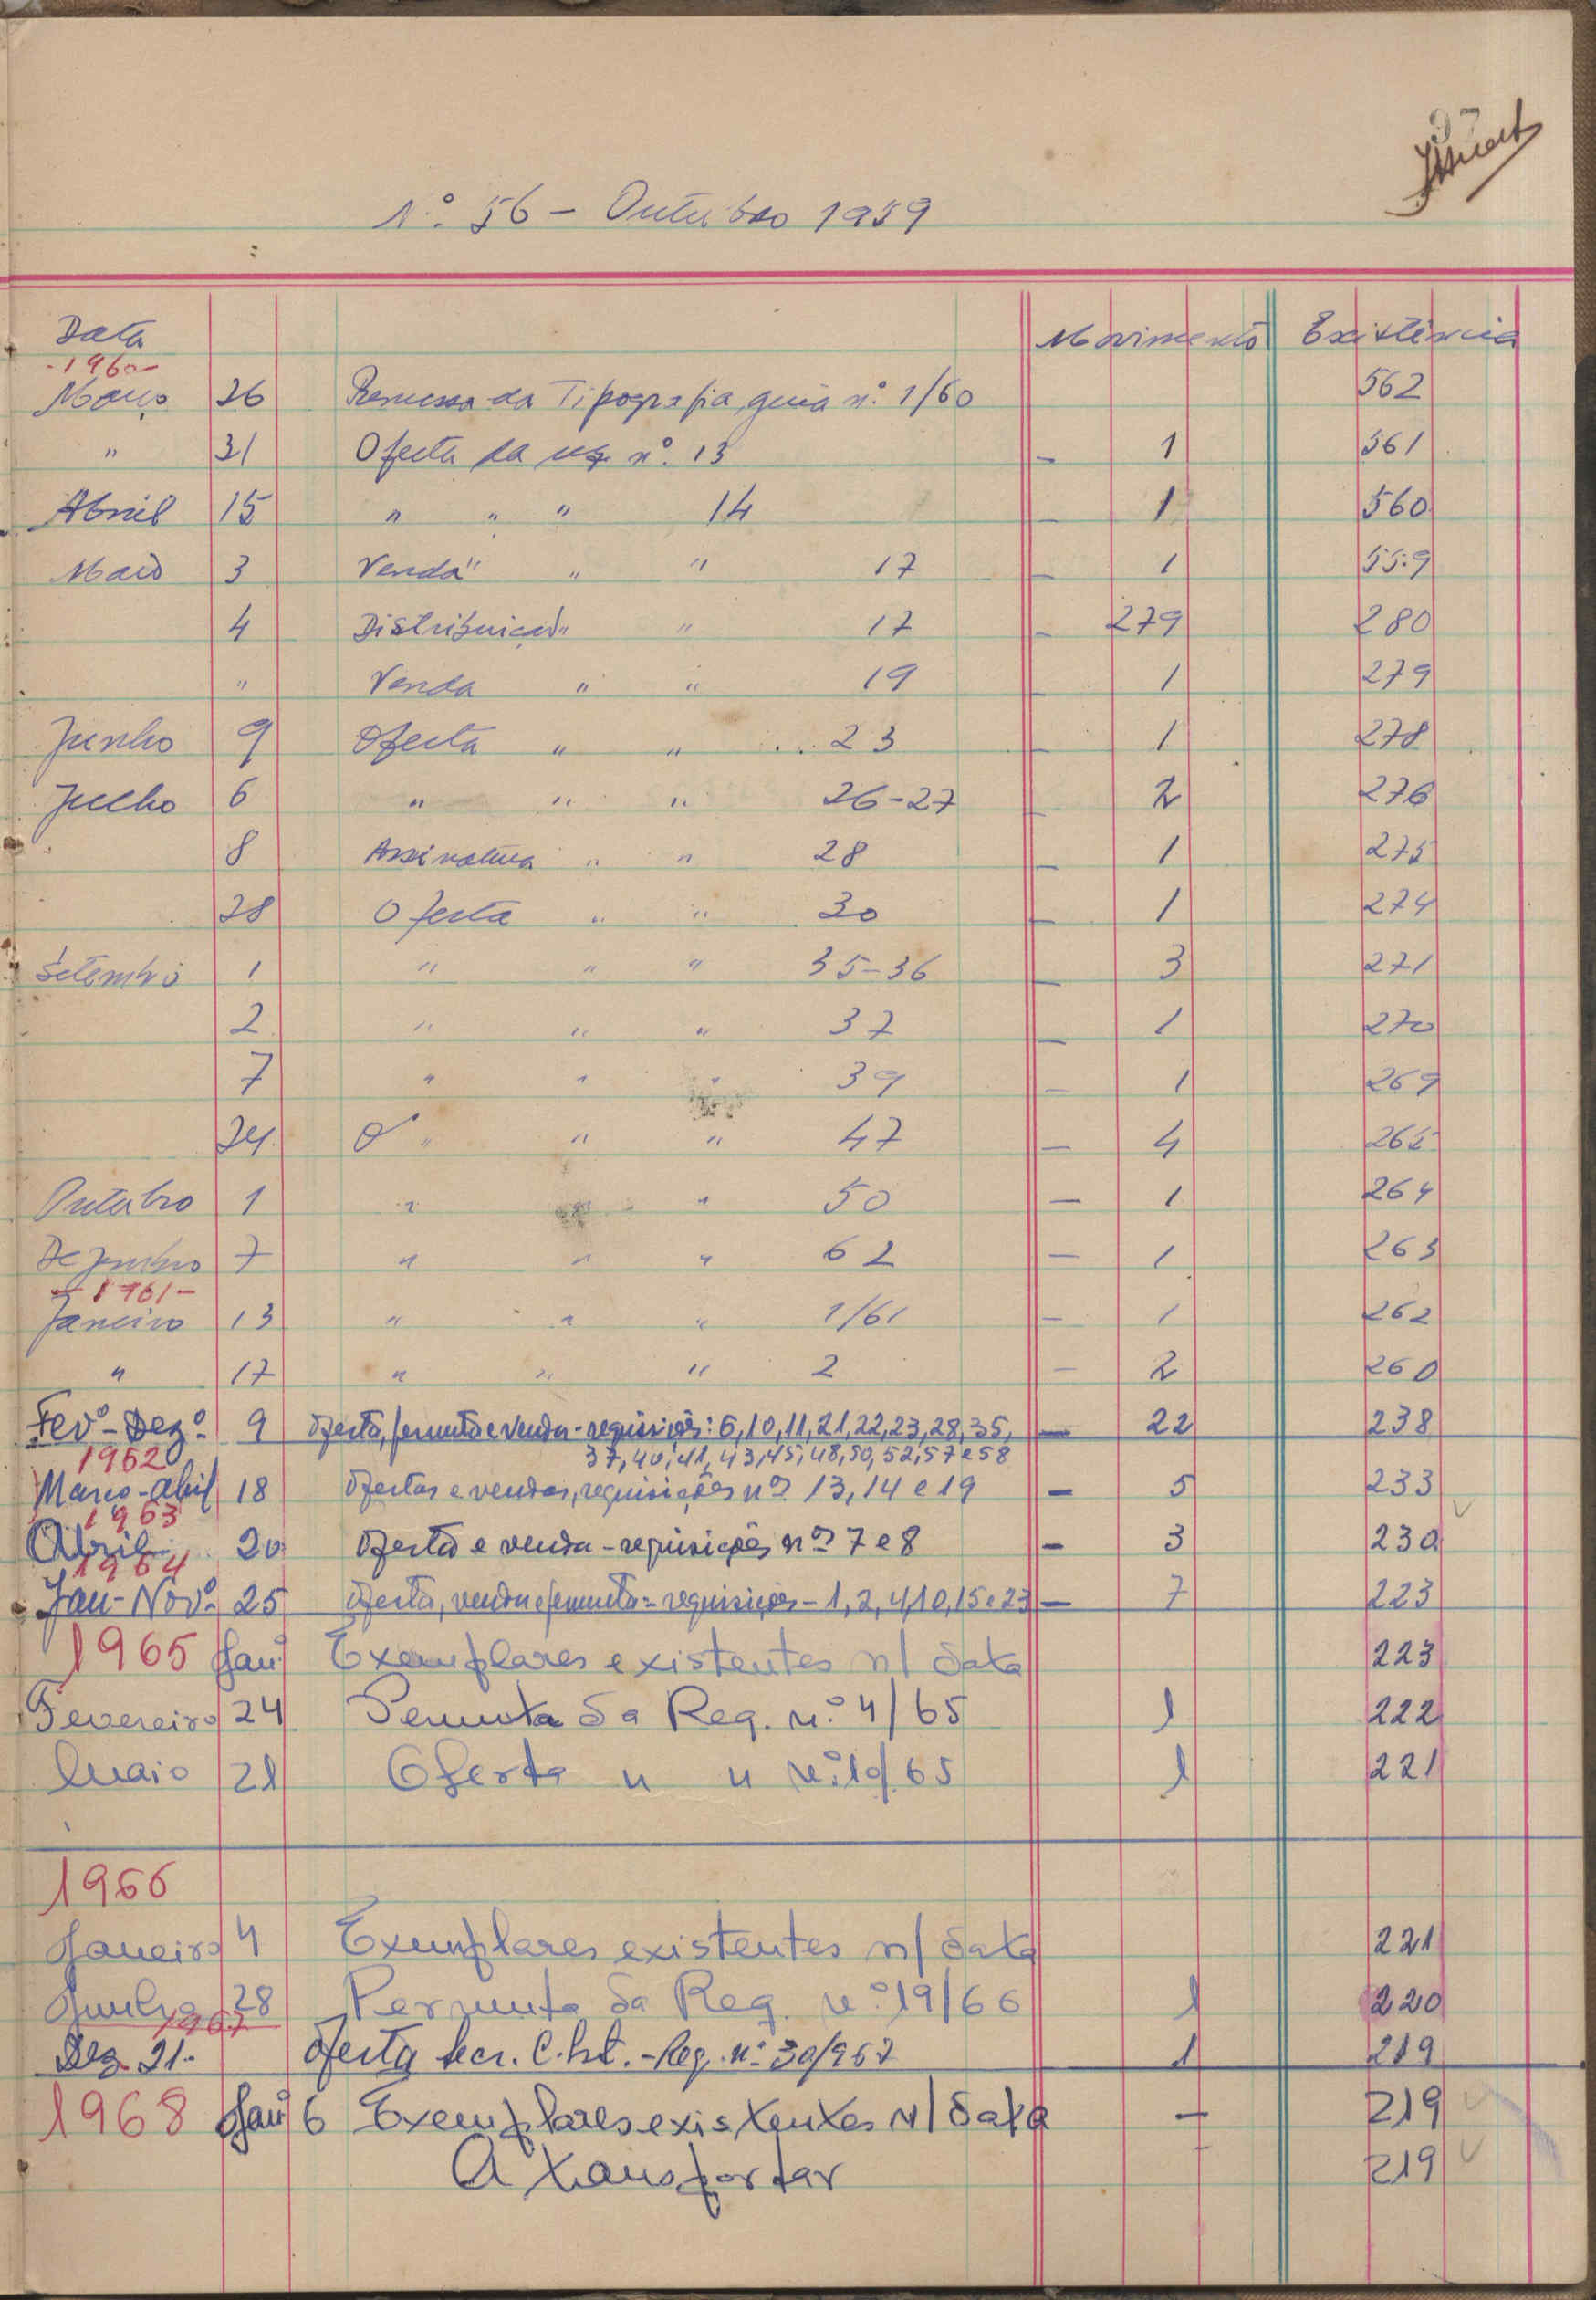 97
Nº. 56 - Outubro 1959
Data Movimento Existência
-1960-
Março 26 Remessa da Tipografia, guia nº. 1/60 562
" 31 Oferta da nº. 13 - 1 561
Abril 15 " " " 14 - 1 560
Maio 3 Venda " " " 17 - 1 559
4 Distribuição " " 17 - 279 280
" Venda " " 19 - 1 279
Junho 9 Oferta " " 23 - 1 278
Julho 6 " " " 26-27 - 2 276
8 Assinatura " " 28 - 1 275
28 Oferta " " 30 - 1 274
Setembro 1 " " " 35-36 - 3 271
2 " " " 37 - 1 270
7 " " " 39 - 1 269
24 O " " " 47 - 4 265
Outubro 1 " " 50 - 1 264
Dezembro 7 " " " 62 - 1 263
- 1961 -
Janeiro 13 " " " 1/61 - 1 262
" 17 " " " 2 - 2 260
Fevº-Dezº 9 Oferta, permuta e venda - requisições: 6, 10, 11, 21, 22, 23, 28, 35, - 22 238
37, 40, 41, 43, 45, 48, 50, 52, 57 e 58
1962
Março-Abril 18 Ofertas e vendas, requisições nºs 13, 14 e 19 - 5 233
1963
Abril 20 Oferta e venda - requisições nºs 7 e 8 - 3 230
1964
Jan-Novº 25 Oferta, venda e permuta = requisições - 1, 2, 4, 10, 15 e 23 - 7 223
1965 Janº Exemplares existentes n/ data 223
Fevereiro 24 Permuta da Req. n.º 4/65 1 222
Maio 21 Oferta " " n.º 10/65 1 221
1966
Janeiro 4 Exemplares existentes n/ data 221
Junho 28 Permuta da Req. n.º 19/66 1 220
1967
Dez. 21- Oferta - Req. nº 30/967 1 219
1968 Janº 6 Exemplares existentes n/ data - 219
A transportar - 219